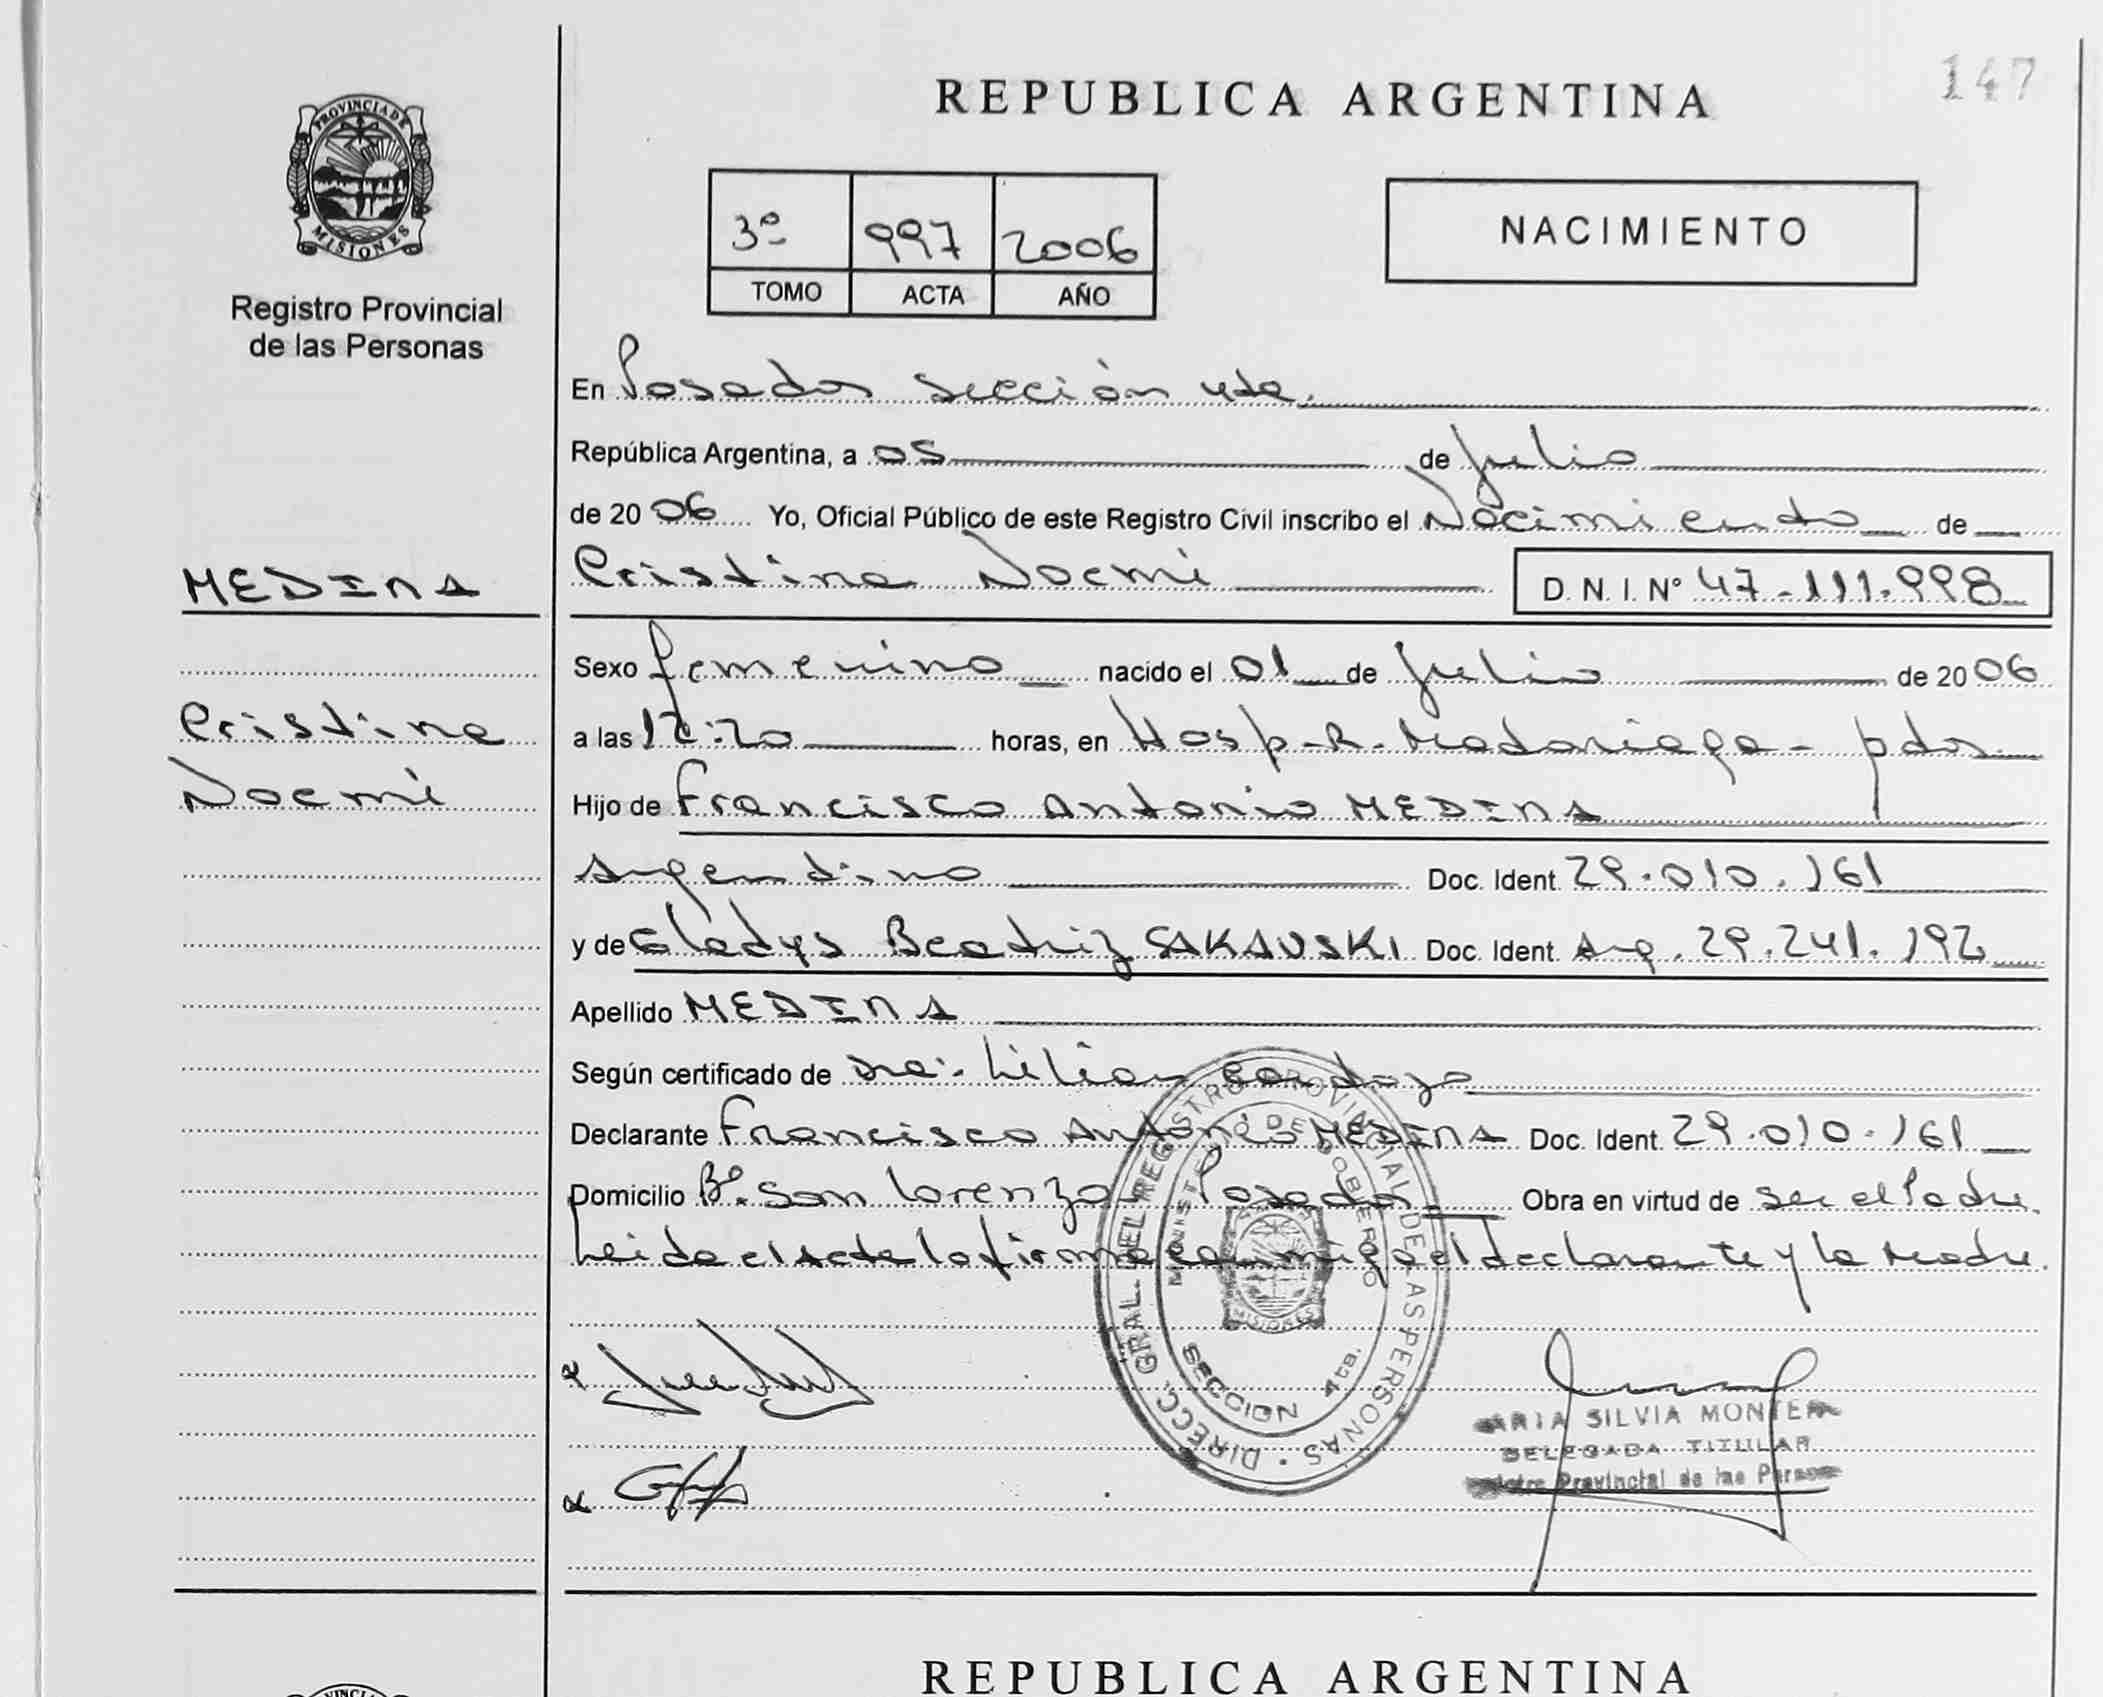 147
REPUBLICA ARGENTINA
PROVINCIA DE
MISIONES
Registro Provincial
de las Personas
3º 997 2006
TOMO ACTA AÑO
NACIMIENTO
En Posadas sección 4ta.
República Argentina, a 05 de Julio
de 2006 Yo, Oficial Público de este Registro Civil inscribo el Nacimiento de
MEDINA
Cristina Noemí D. N. I. Nº 47.111.998
Sexo femenino nacido el 01 de Julio de 2006
Cristina
Noemí
a las 12:20 horas, en Hosp. R. Madariaga - pdas
Hijo de Francisco Antonio MEDINA
Argentino Doc. Ident. 29.010.161
y de Gladys Beatriz SAKAUSKI Doc. Ident. Arg. 29.241.192
Apellido MEDINA
Según certificado de Dra. Lilian Cardozo
Declarante Francisco Antonio MEDINA Doc. Ident. 29.010.161
Domicilio Bº. San Lorenzo Posadas Obra en virtud de ser el Padre.
Leida el acta la firma conmigo el declarante y la Madre.
DIRECC. GRAL. DEL REGISTRO PROVINCIAL DE LAS PERSONAS
MINISTERIO DE GOBIERNO
MISIONES
SECCION 4ta.
ARIA SILVIA MONTER
DELEGADA TITULAR
Provincial de las Person
REPUBLICA ARGENTINA